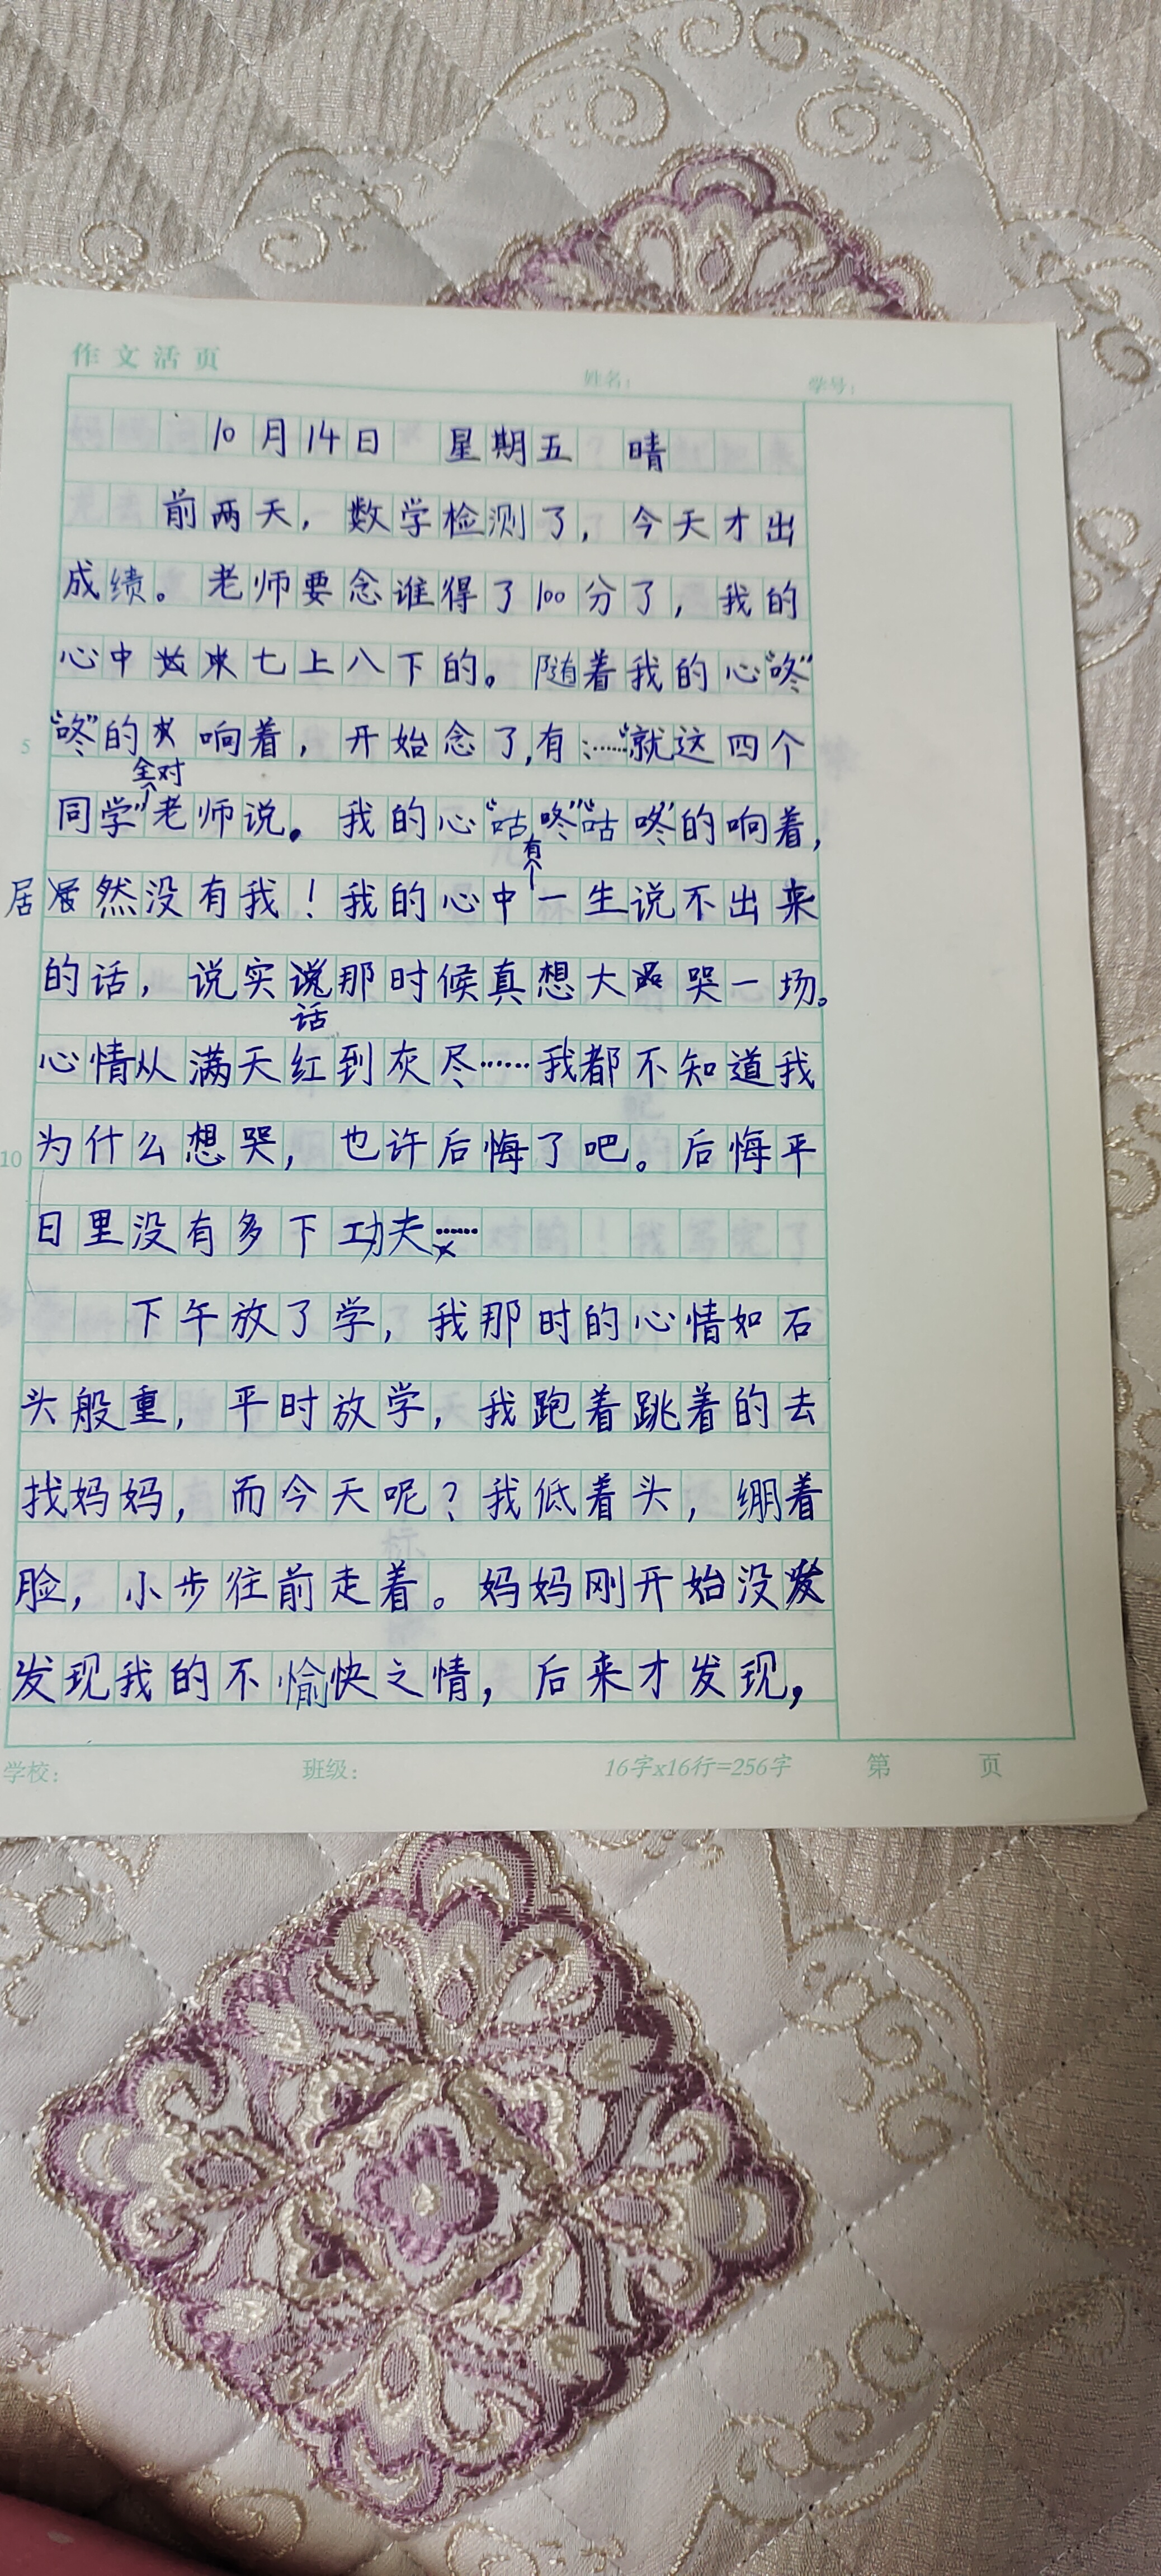 作文活页
姓名： 学号：
10月14日 星期五 晴
前两天，数学检测了，今天才出
成绩。老师要念谁得了100分了，我的
心中七上八下的。随着我的心“咚”
“咚”的响着，开始念了，有：……“就这四个
同学全对”老师说。我的心“咕咚”“咕咚”的响着，
居然没有我！我的心中有一生说不出来
的话，说实话那时候真想大哭一场。
心情从满天红到灰尽……我都不知道我
为什么想哭，也许后悔了吧。后悔平
5
10
日里没有多下功夫……
下午放了学，我那时的心情如石
头般重，平时放学，我跑着跳着的去
找妈妈，而今天呢？我低着头，绷着
脸，小步往前走着。妈妈刚开始没
发现我的不愉快之情，后来才发现，
学校： 班级： 16字x16行=256字 第 页